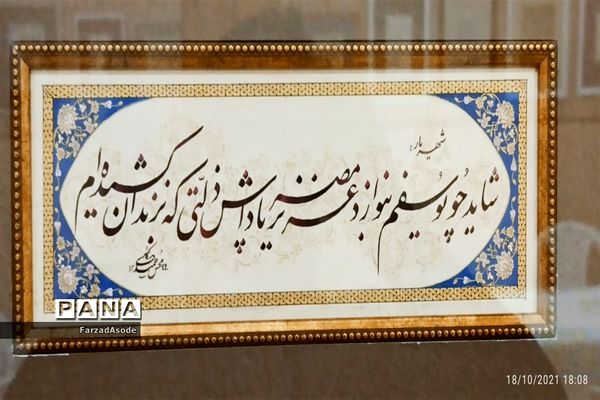 شهریار:
شاید چو یوسفم بنوازد عزیز مصر پاداش ذلّتی که بزندان کشیده‌ام
PANA
FarzadAsode
18/10/2021 18:08